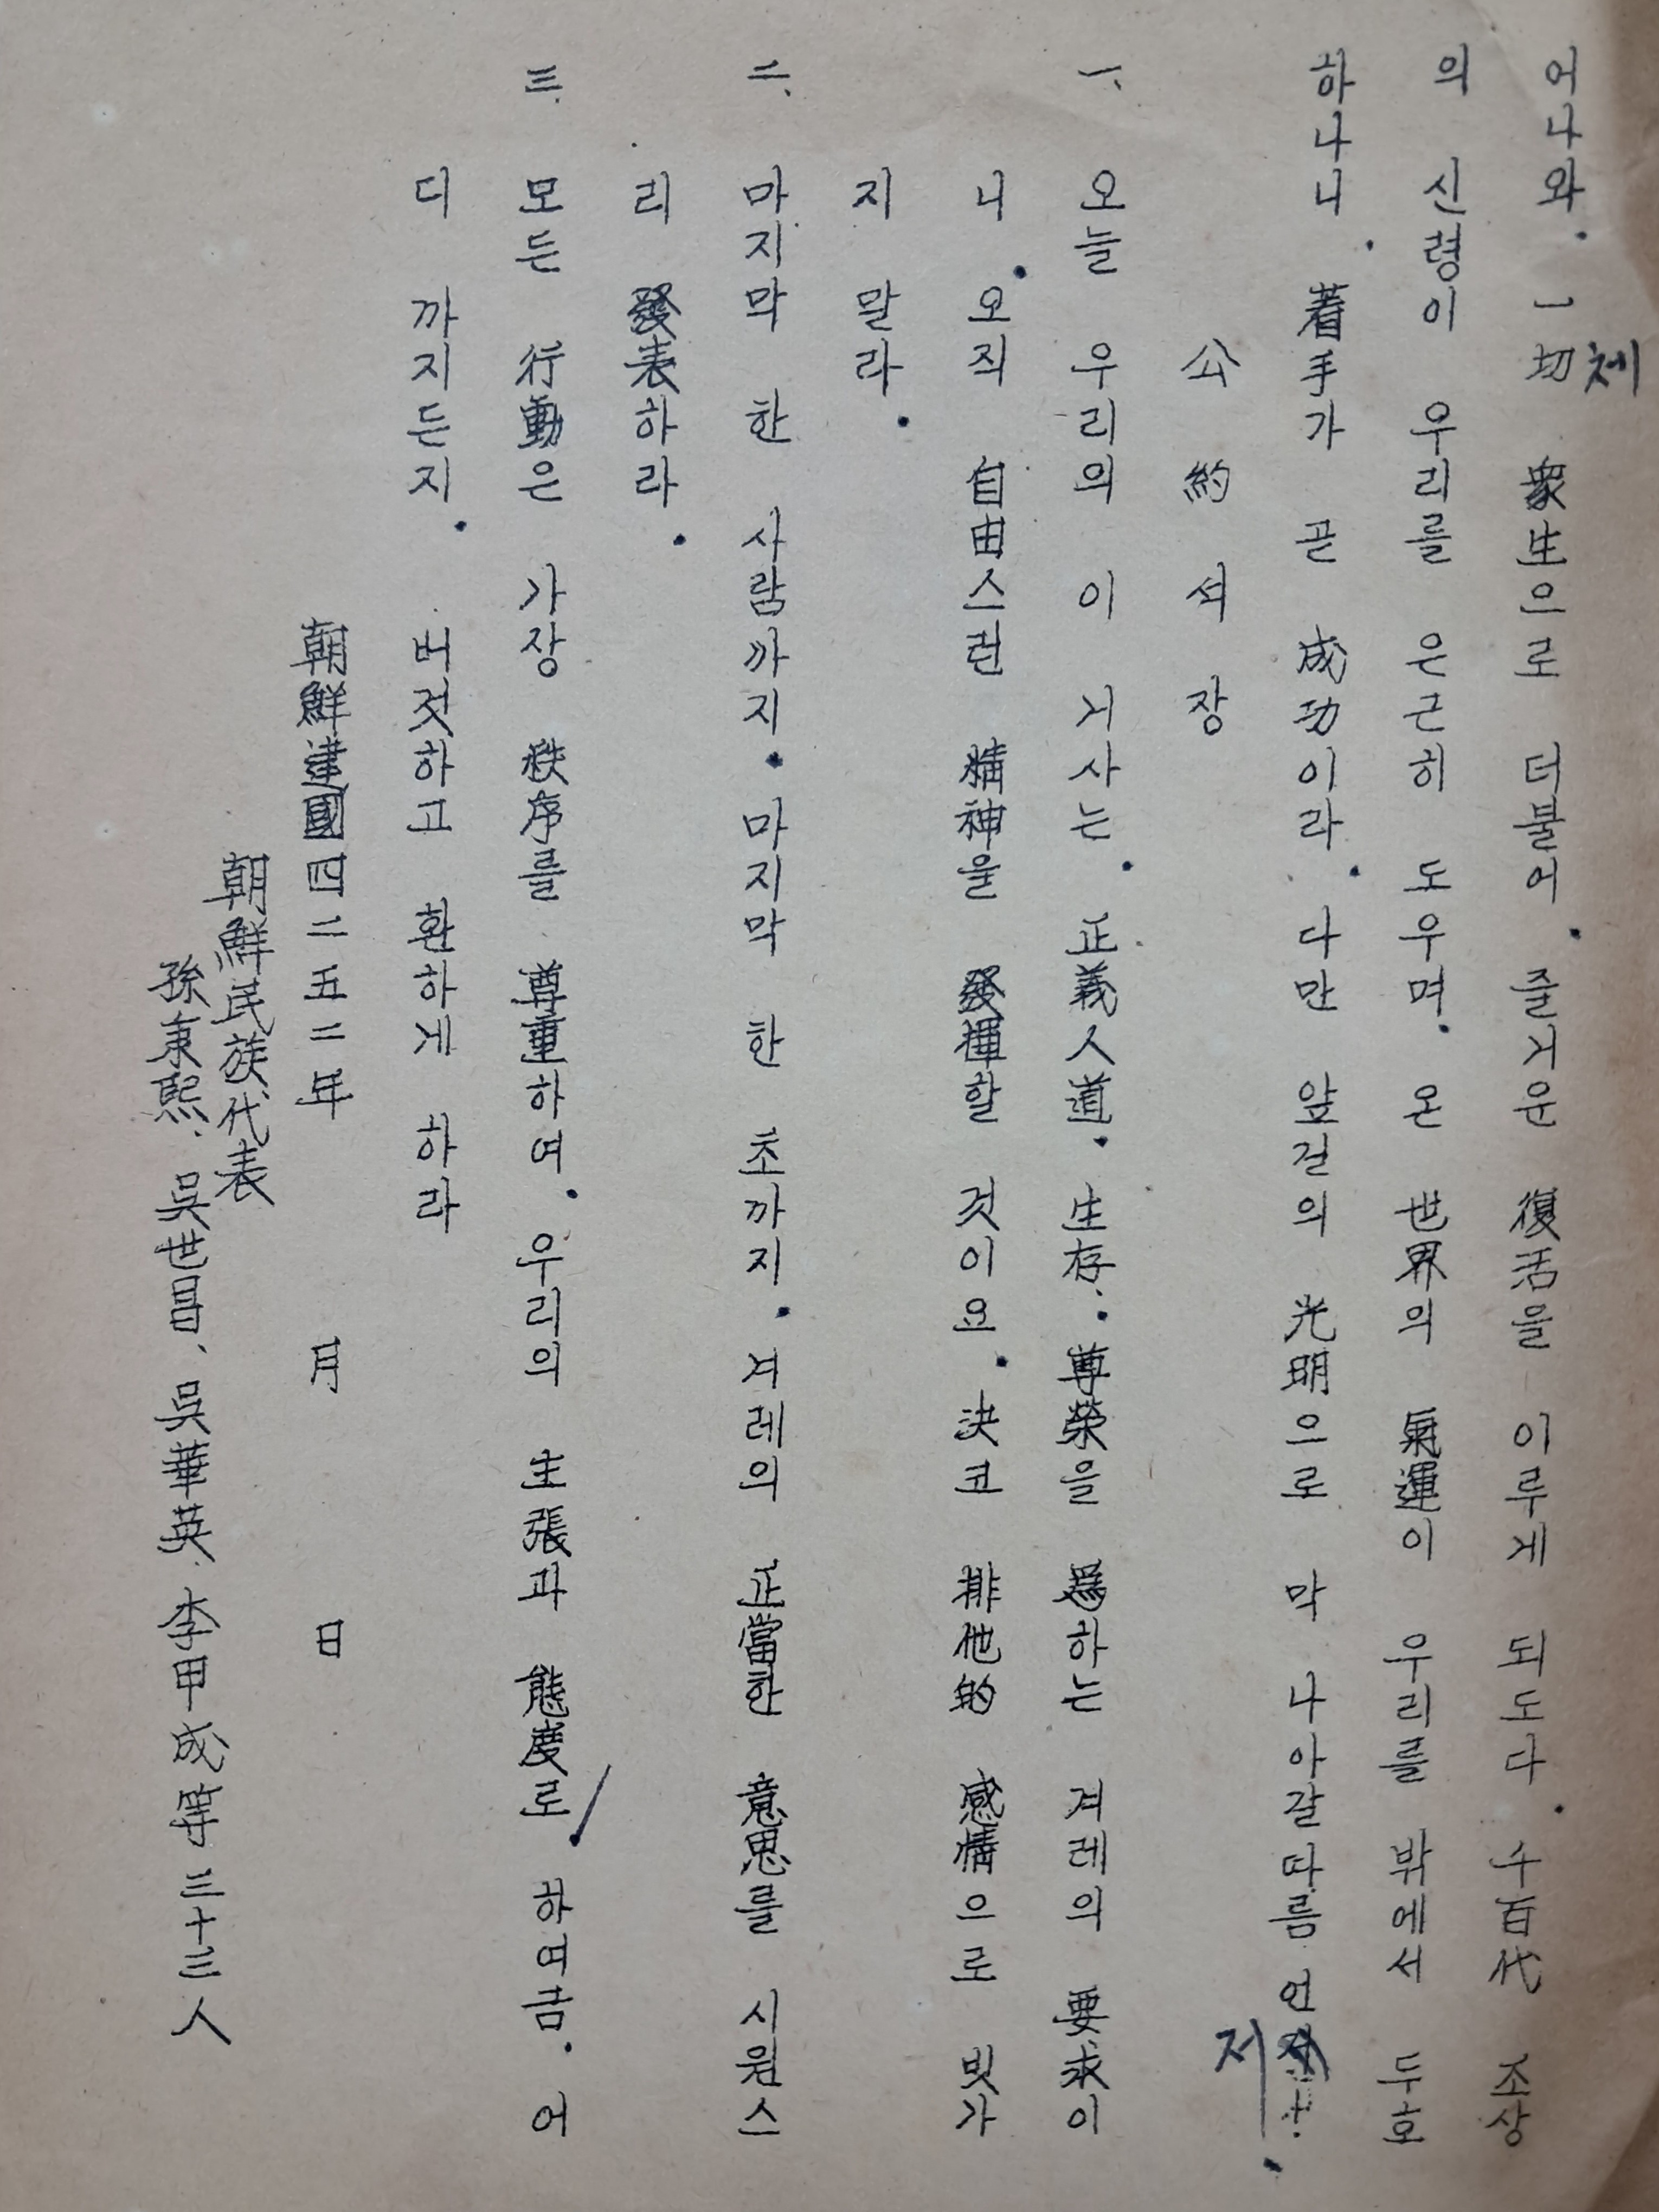 어나와. 一切 체 衆生으로 더불어. 즐거운 復活을 이루게 되도다. 수百代 조상
의 신령이 우리를 은근히 도우며. 온 世界의 氣運이 우리를 밖에서 두호
하나니. 着手가 곧 成功이라. 다만 앞길의 光明으로 막 나아갈따름 인저
公約 세 장
一、 오늘 우리의 이 거사는. 正義人道. 生存. 尊榮을 爲하는 겨레의 要求이
니. 오직 自由스런 精神을 發揮할 것이요. 決코 排他的 感情으로 빗가
지 말라.
二、 마지막 한 사람까지. 마지막 한 초까지. 겨레의 正當한 意思를 시원스
리 發表하라.
三、 모든 行動은 가장 秩序를 尊重하여. 우리의 主張과 態度로 하여금. 어
디 까지든지. 버젓하고 환하게 하라
朝鮮建國四二五二年 月 日
朝鮮民族代表
孫秉熙、吳世昌、吳華英、李甲成等三十三人